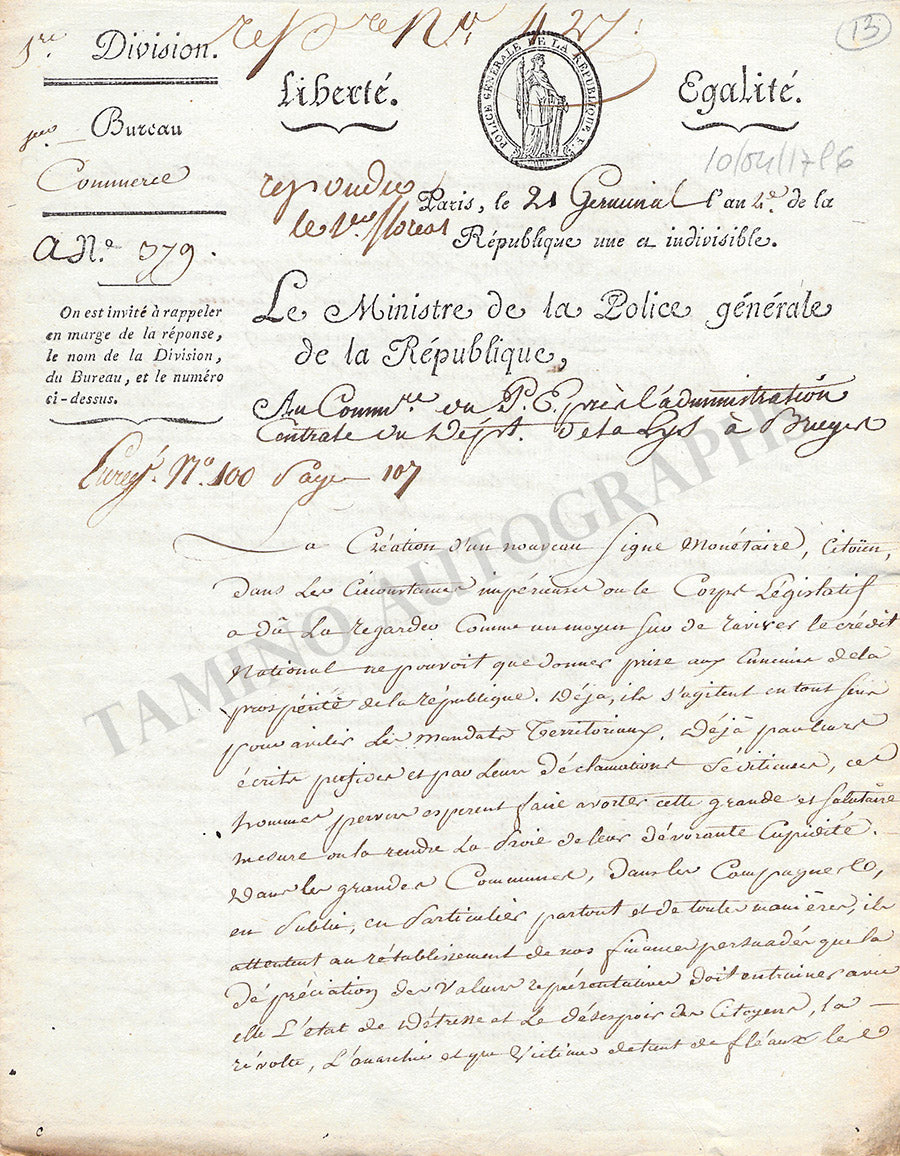 rep re No. 427
13
1re Division.
Liberté.
POLICE GÉNÉRALE DE LA RÉPUBLIQUE F.
Egalité.
Bureau
Commerce
10/04/1796
repondu
le 1er floreal
Paris, le 21 Germinal l'an 4e. de la
République une et indivisible.
A No. 379.
On est invité à rappeler
en marge de la réponse,
le nom de la Division,
du Bureau, et le numéro
ci-dessus.
Le Ministre de la Police générale
de la République,
Au Commre. du P. E. près l'administration
Centrale du Dépt. de la Lys à Bruges
Euregé. No. 100 Page 107
La Création d'un nouveau Signe Monétaire, Citoïen,
dans les Circonstances impérieuses ou le Corps Législatif
a dû La regarder Comme un moyen sur de raviver le crédit
National ne pouvoit que donner prise aux Ennemis de la
prospérité de la république. Déja, ils s'agitent en tout sens
pour avilir Les Mandats Territoriaux. Déjà par leurs
écrits perfides et par leurs Déclamations Séditieuses, ces
hommes pervers esperent faire avorter cette grande et salutaire
mesure ou la rendre La Proie de leur dévorante Cupidité.
Dans les grandes Communes, dans les Campagnes,
en Public, en Particulier partout et de toutes manières, ils
attentent au rétablissement de nos finances persuadés que la
dépréciation des Valeurs représentatives doit entrainer avec
elle L'état de Détresse et Le désespoir des Citoyens, la
révolte, L'anarchie et que Victime de tant de fléaux le
TAMINO AUTOGRAPHS